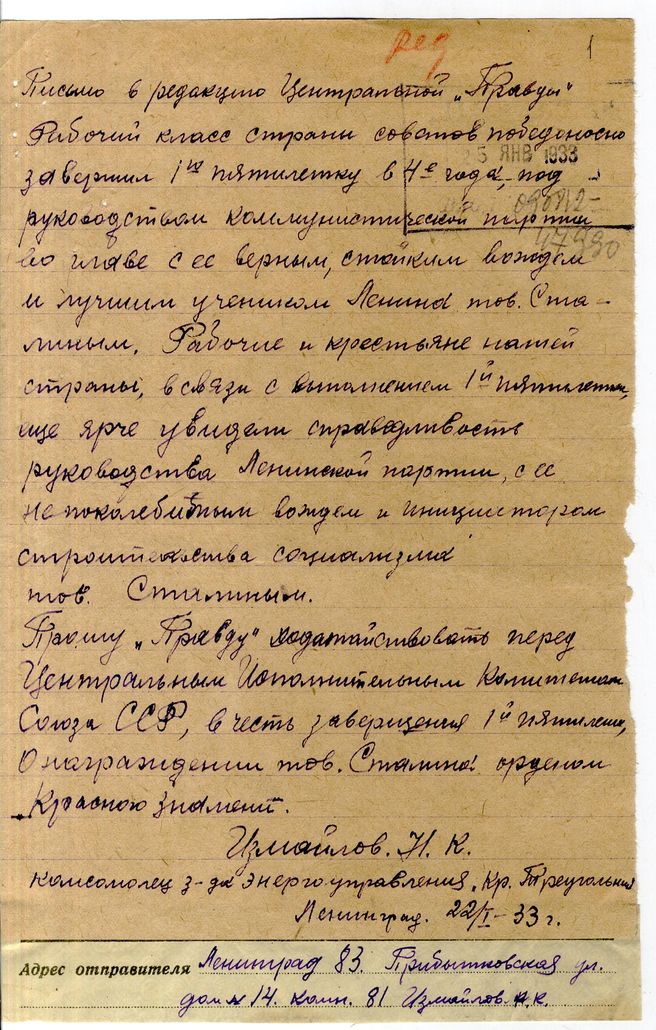 ред
1
Письмо в редакцию Центральной „Правды“
Рабочий класс страны советов победоносно
25 ЯНВ 1933
завершил 1ую пятилетку в 4е года, под
руководством коммунистической партии
47990
во главе с ее верным, стойким вождем
и лучшим учеником Ленина тов. Ста-
линым. Рабочие и крестьяне нашей
страны, в связи с выполнением 1й пятилетки,
еще ярче увидели справедливость
руководства Ленинской партии, с ее
непоколебимым вождем и инициатором
строительства социализма
тов. Сталиным.
Прошу „Правду“ ходатайствовать перед
Центральным Исполнительным Комитетом
Союза ССР, в честь завершения 1й пятилетки,
О награждении тов. Сталина орденом
Красного знамени.
Измайлов. Н. К.
Комсомолец з-да энергоуправления „Кр. Треугольник
Ленинград. 22/I-33 г.
Адрес отправителя Ленинград 83. Прибытковская ул.
дом № 14. комн. 81 Измайлов. Н. К.